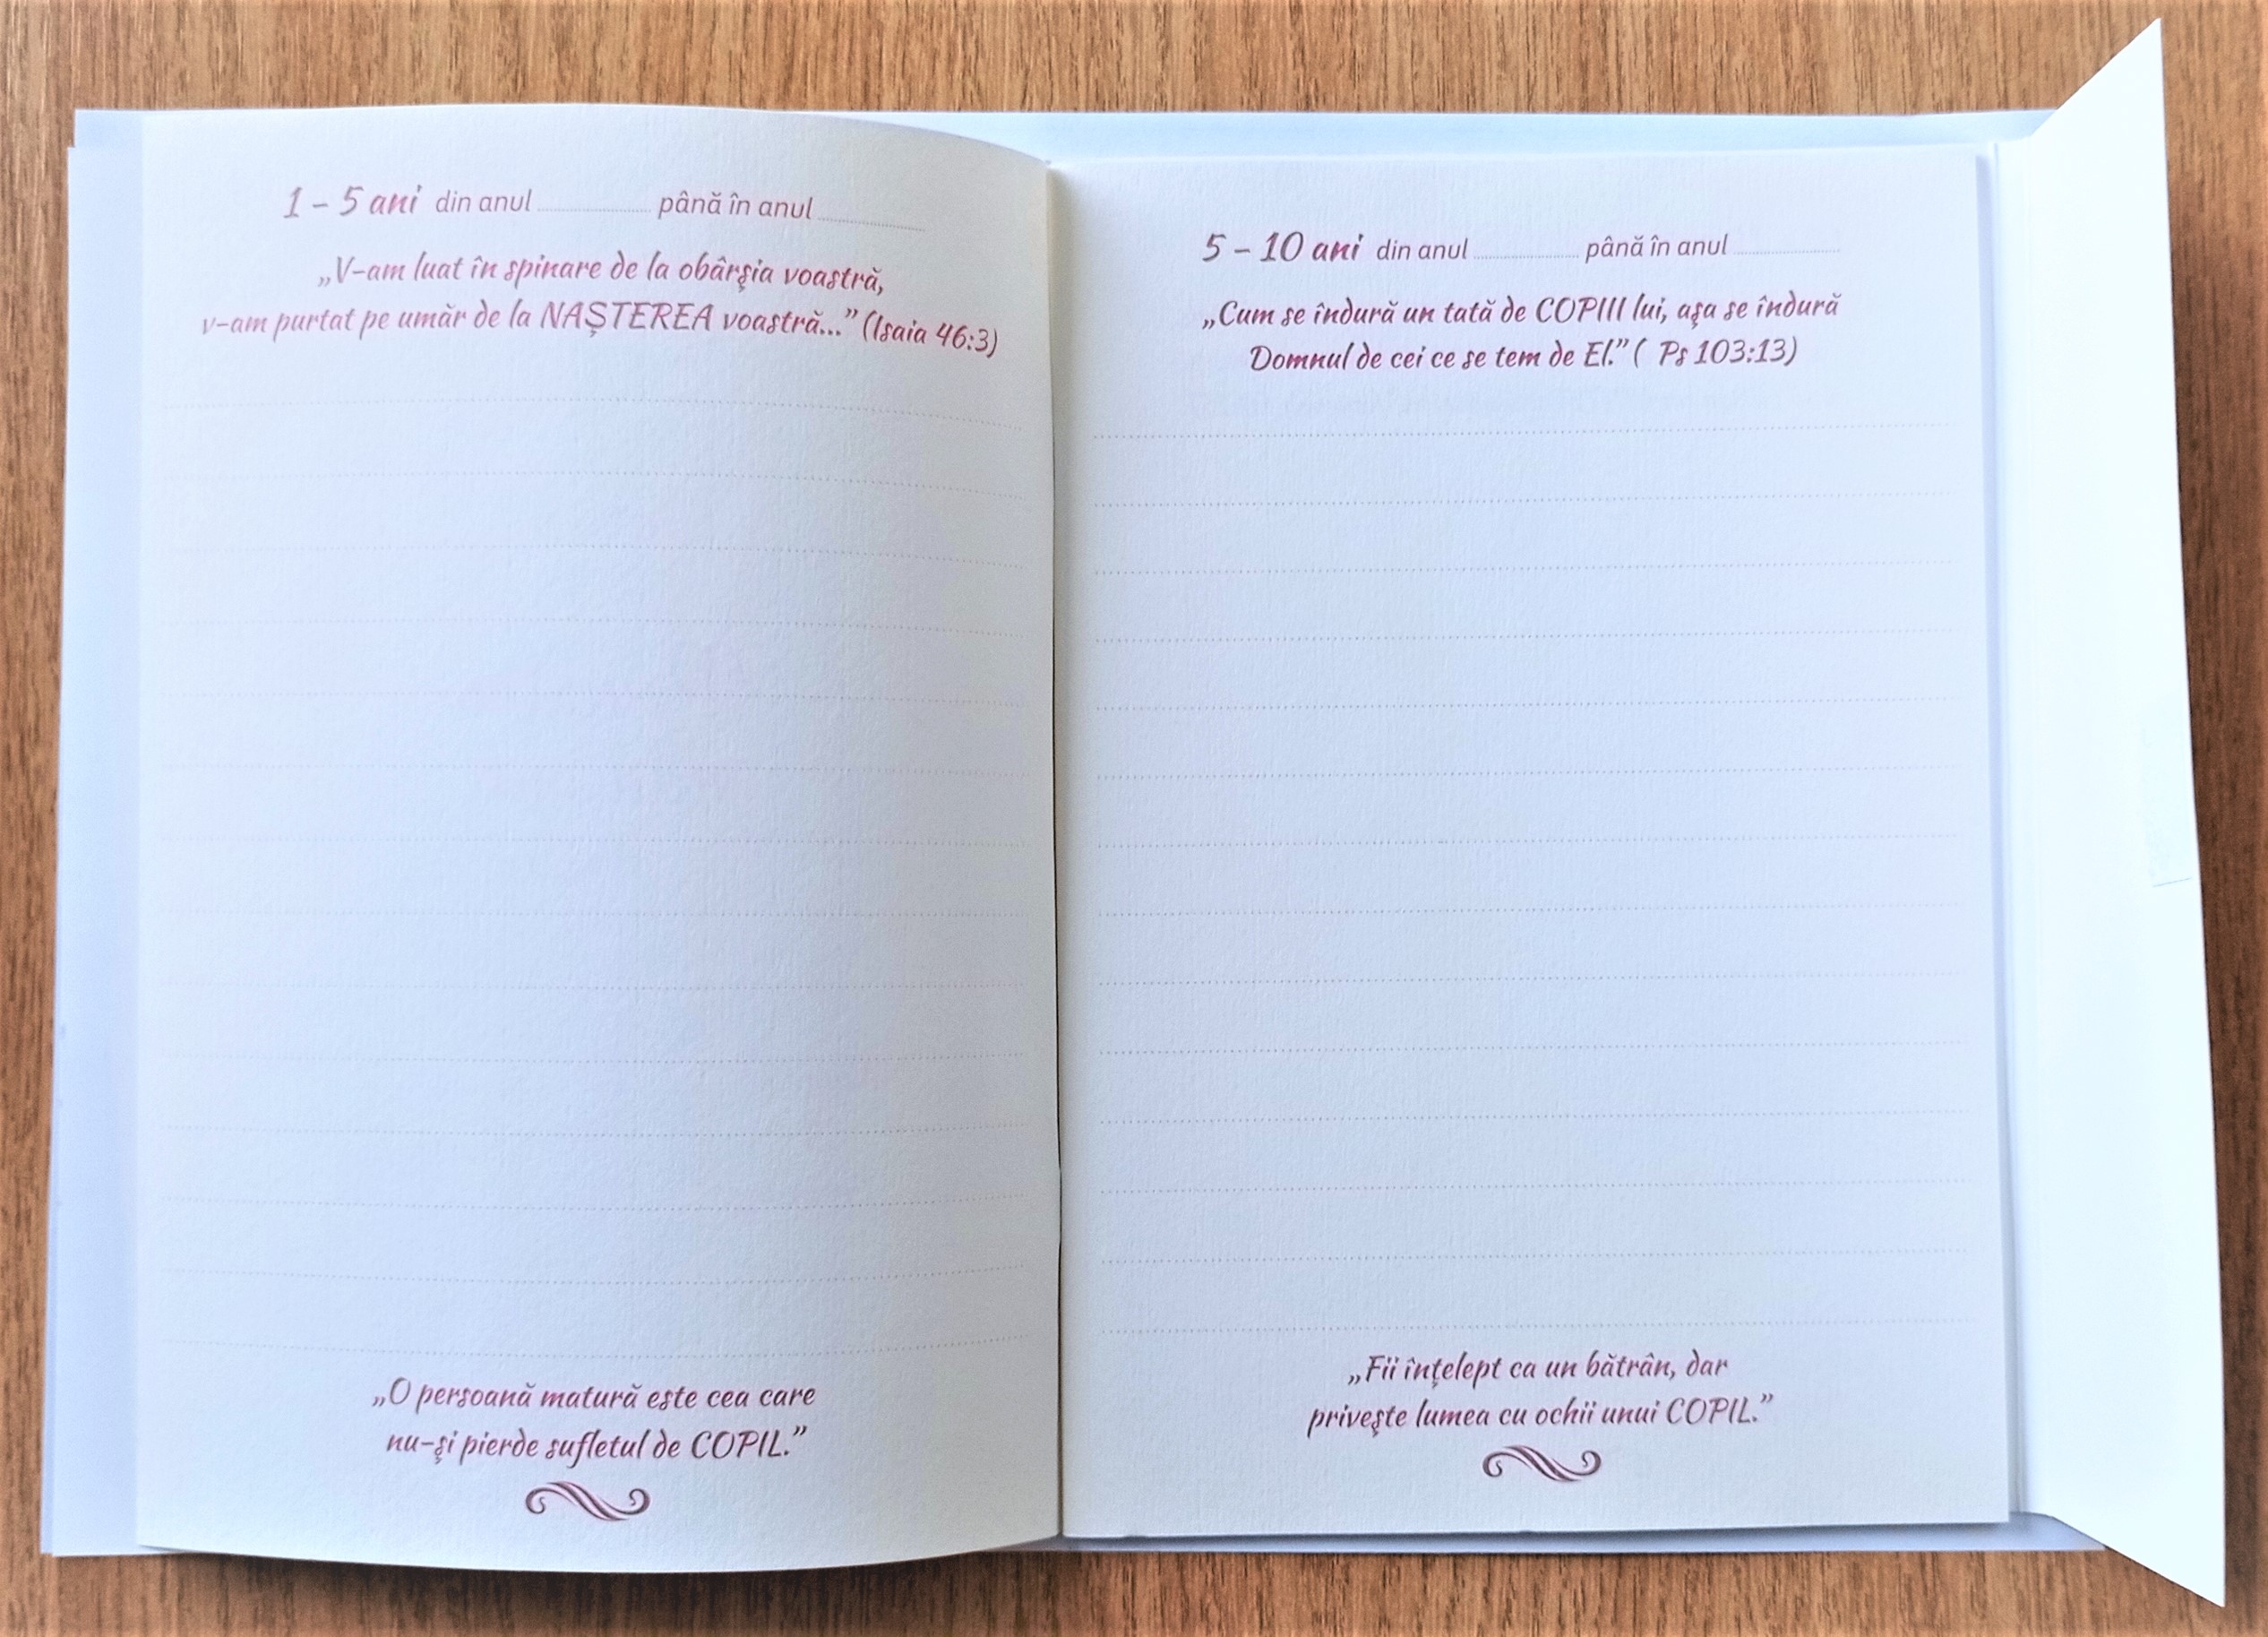 1 – 5 ani din anul ............ până în anul ............
„V-am luat în spinare de la obârşia voastră,
v-am purtat pe umăr de la NAŞTEREA voastră...” (Isaia 46:3)
„O persoană matură este cea care
nu-şi pierde sufletul de COPIL.”
5 – 10 ani din anul ............ până în anul ............
„Cum se îndură un tată de COPIII lui, aşa se îndură
Domnul de cei ce se tem de El.” ( Ps 103:13)
„Fii înţelept ca un bătrân, dar
priveşte lumea cu ochii unui COPIL.”